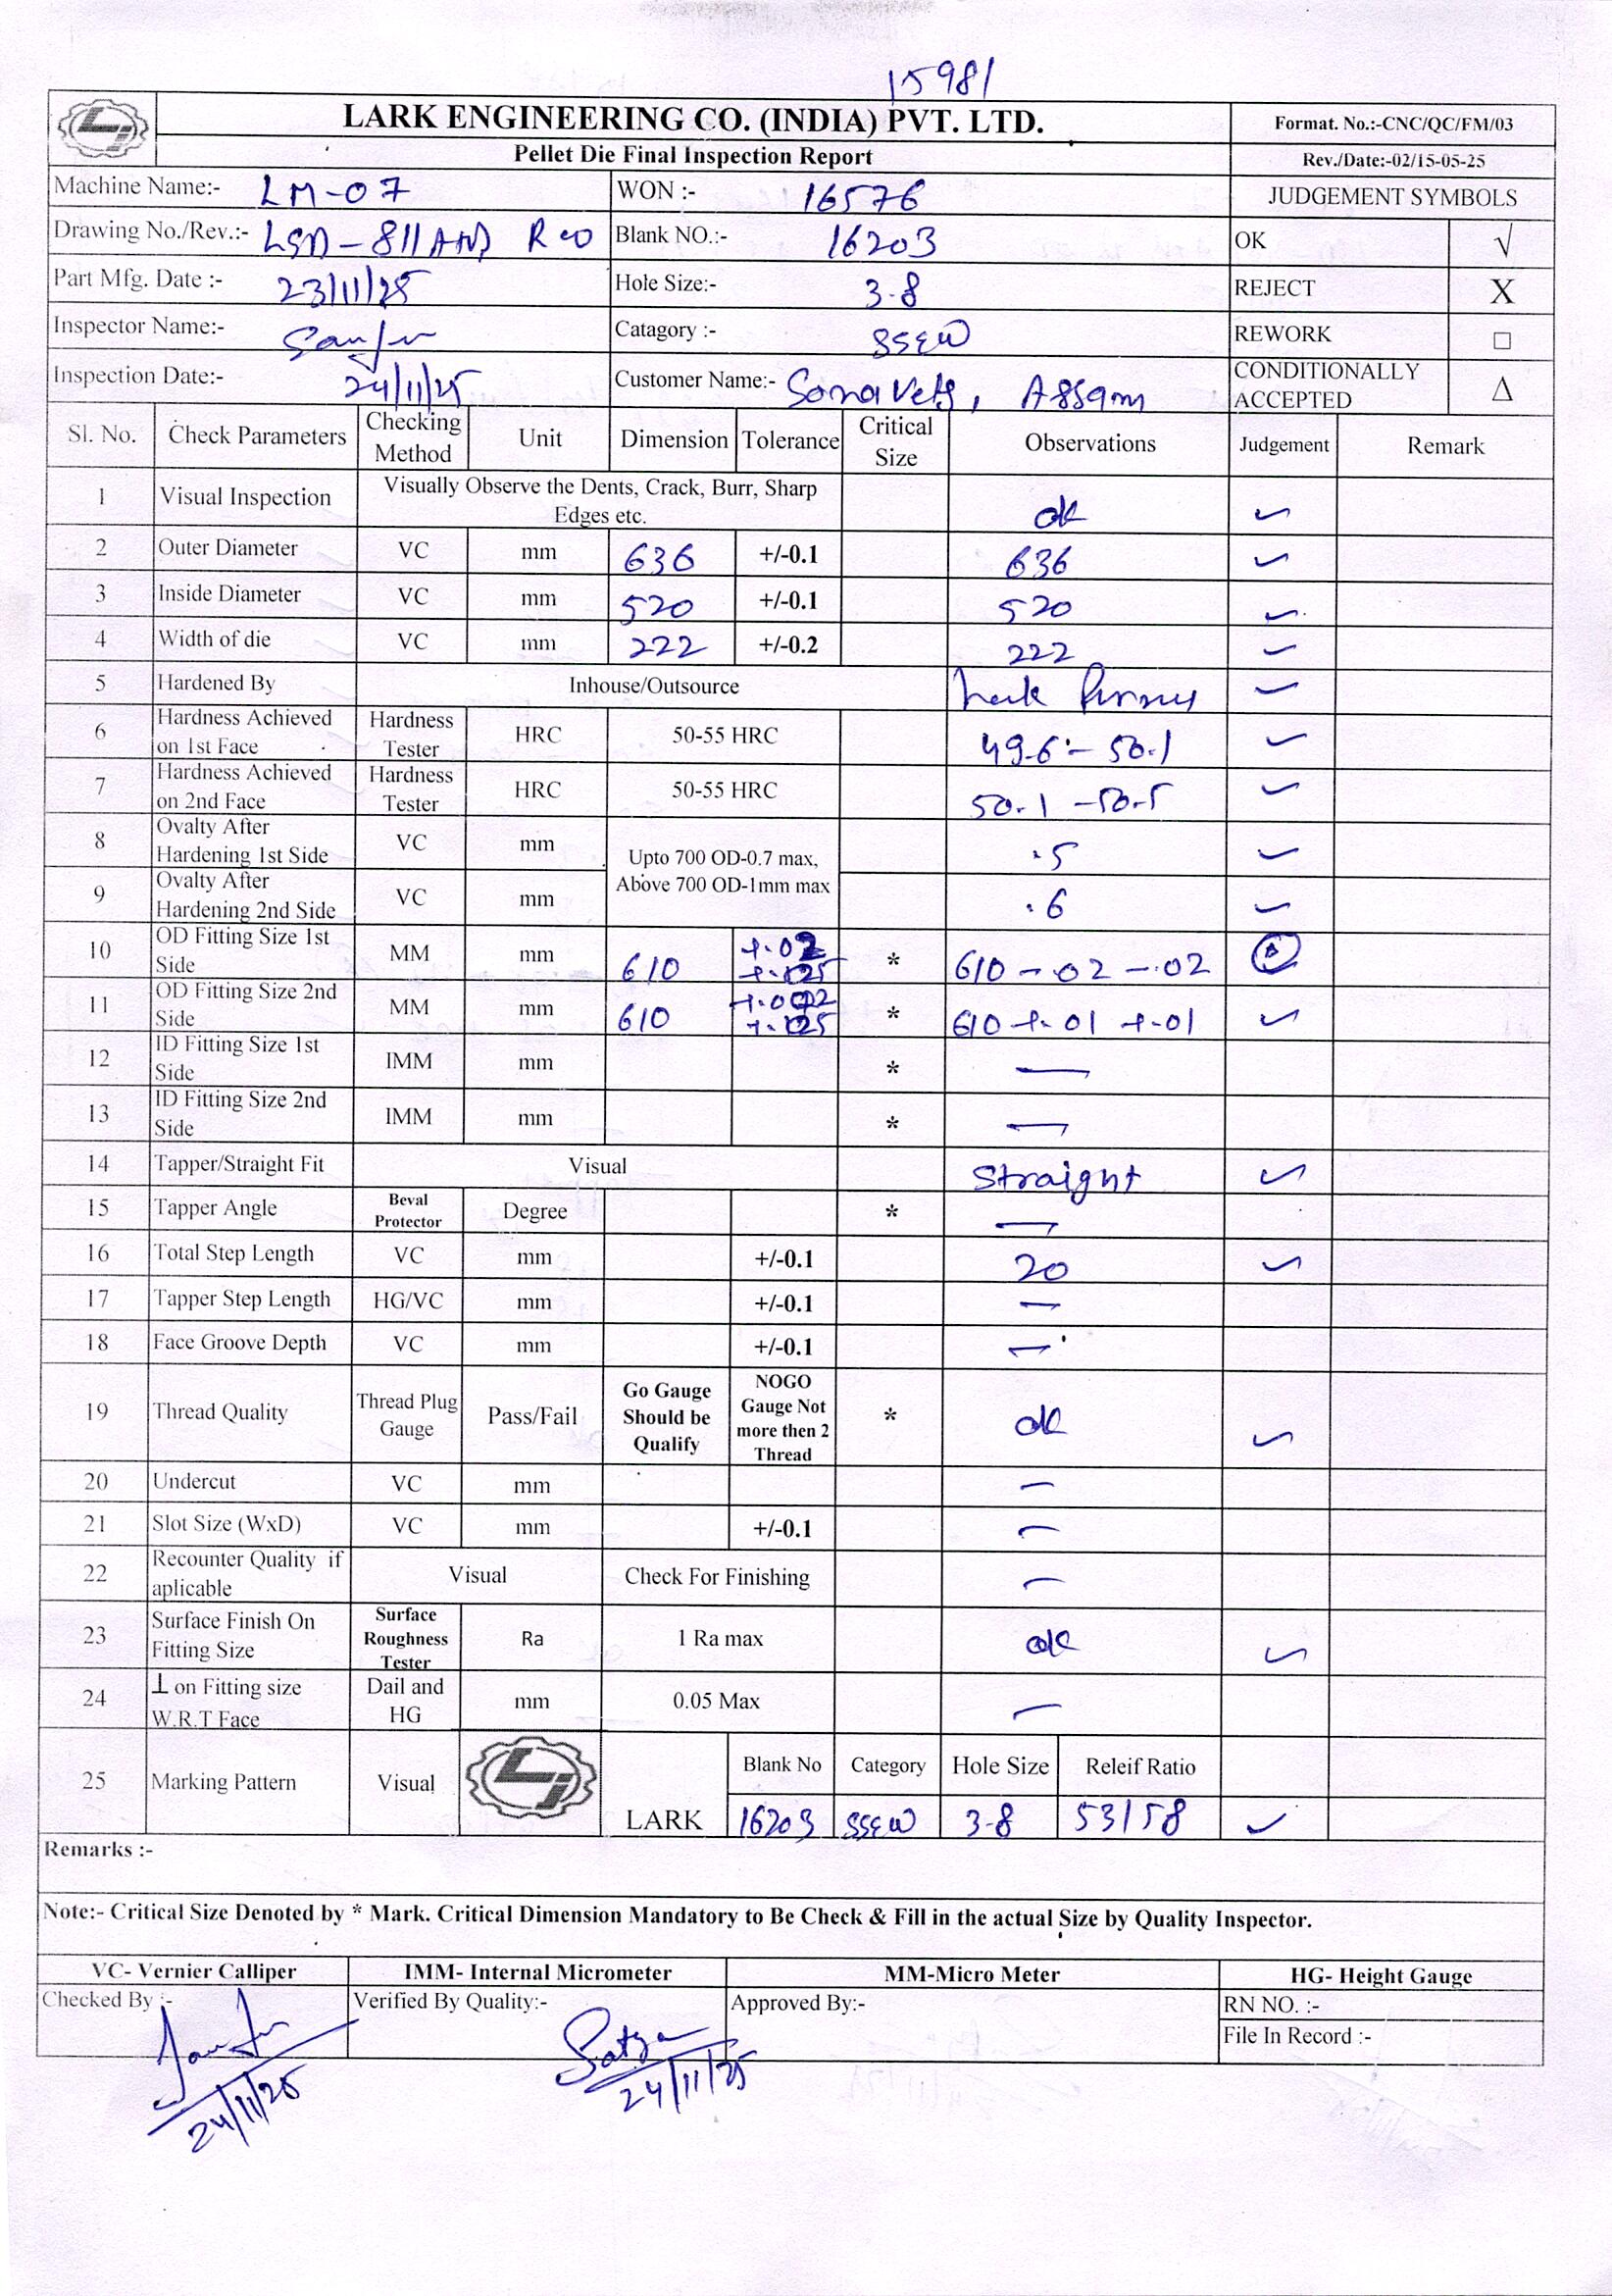 15981
LARK ENGINEERING CO. (INDIA) PVT. LTD.
Format. No.:-CNC/QC/FM/03
Pellet Die Final Inspection Report
Rev./Date:-02/15-05-25
Machine Name:- LM-07 WON :- 16576 JUDGEMENT SYMBOLS
Drawing No./Rev.:- Blank NO.:- 16203 OK √
Part Mfg. Date :- 23/11/25 Hole Size:- 3.8 REJECT X
Inspector Name:- Catagory :- SSEW REWORK □
Inspection Date:- 24/11/25 Customer Name:- Sona Vets, Assam CONDITIONALLY ACCEPTED Δ
Sl. No. Check Parameters Checking Method Unit Dimension Tolerance Critical Size Observations Judgement Remark
1 Visual Inspection Visually Observe the Dents, Crack, Burr, Sharp Edges etc. ok ✓
2 Outer Diameter VC mm 636 +/-0.1 636 ✓
3 Inside Diameter VC mm 520 +/-0.1 520 ✓
4 Width of die VC mm 222 +/-0.2 222 ✓
5 Hardened By Inhouse/Outsource ✓
6 Hardness Achieved on 1st Face Hardness Tester HRC 50-55 HRC 49.6 - 50.1 ✓
7 Hardness Achieved on 2nd Face Hardness Tester HRC 50-55 HRC 50.1 - 50.5 ✓
8 Ovalty After Hardening 1st Side VC mm Upto 700 OD-0.7 max, Above 700 OD-1mm max .5 ✓
9 Ovalty After Hardening 2nd Side VC mm .6 ✓
10 OD Fitting Size 1st Side MM mm 610 * 610 -.02 -.02
11 OD Fitting Size 2nd Side MM mm 610 * 610 +.01 +.01 ✓
12 ID Fitting Size 1st Side IMM mm * —
13 ID Fitting Size 2nd Side IMM mm * —
14 Tapper/Straight Fit Visual Straight ✓
15 Tapper Angle Beval Protector Degree * —
16 Total Step Length VC mm +/-0.1 20 ✓
17 Tapper Step Length HG/VC mm +/-0.1 —
18 Face Groove Depth VC mm +/-0.1 —
19 Thread Quality Thread Plug Gauge Pass/Fail Go Gauge Should be Qualify NOGO Gauge Not more then 2 Thread * ok ✓
20 Undercut VC mm —
21 Slot Size (WxD) VC mm +/-0.1 —
22 Recounter Quality if aplicable Visual Check For Finishing —
23 Surface Finish On Fitting Size Surface Roughness Tester Ra 1 Ra max ok ✓
24 ⊥ on Fitting size W.R.T Face Dail and HG mm 0.05 Max —
25 Marking Pattern Visual LARK Blank No Category Hole Size Releif Ratio
16203 SSEW 3.8 53/58 ✓
Remarks :-
Note:- Critical Size Denoted by * Mark. Critical Dimension Mandatory to Be Check & Fill in the actual Size by Quality Inspector.
VC- Vernier Calliper IMM- Internal Micrometer MM-Micro Meter HG- Height Gauge
Checked By :- Verified By Quality:- Approved By:- RN NO. :-
File In Record :-
Satya
24/11/25 24/11/25